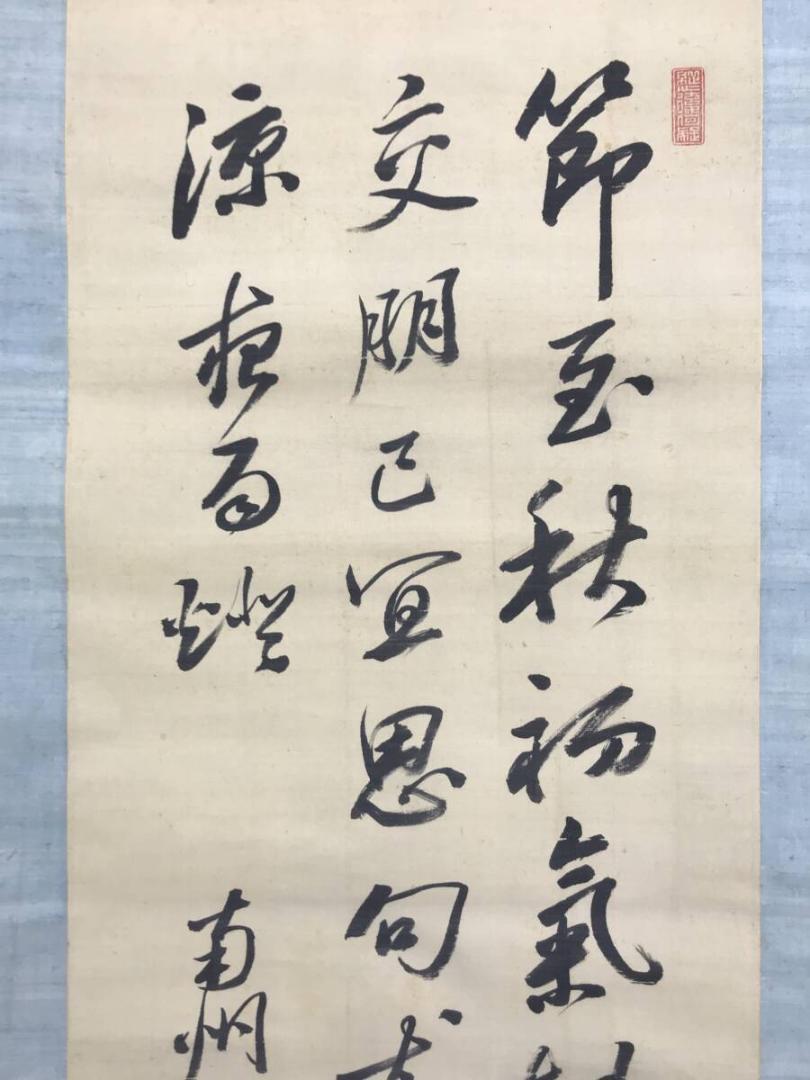 節至秋初氣
交朋已宜思句
涼夜雨燈
南州